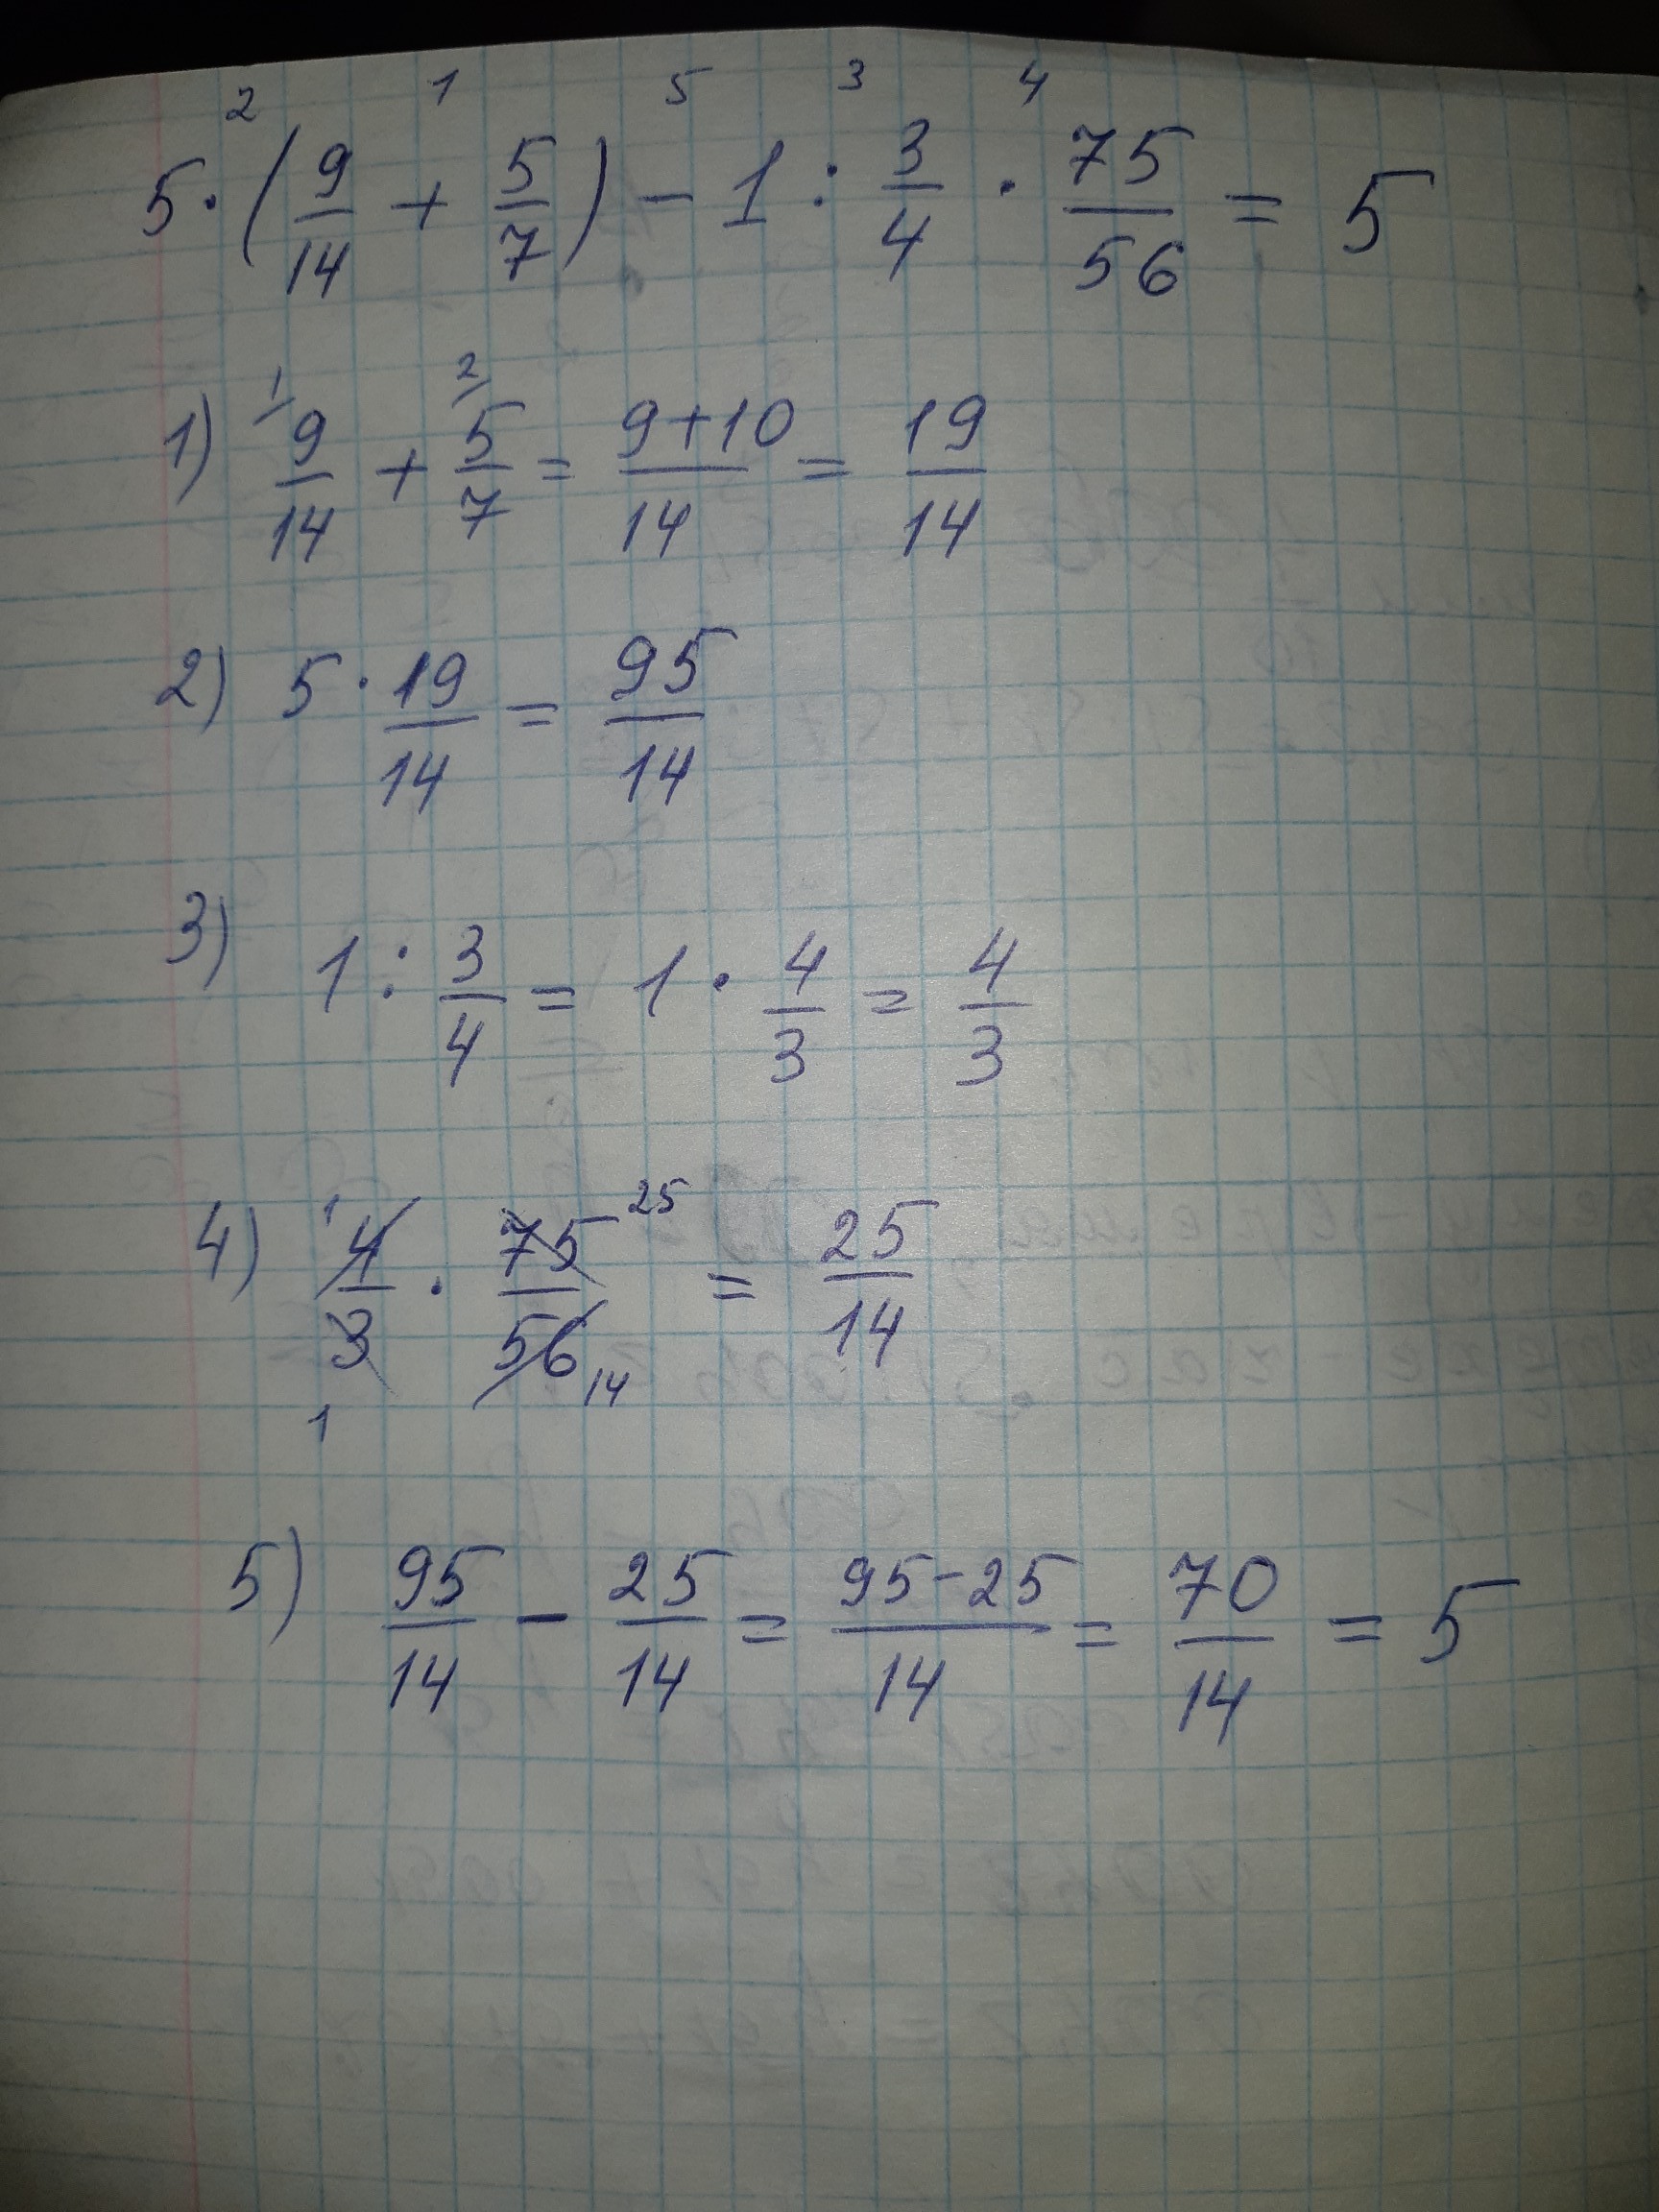 2 1 5 3 4
5 · (9/14 + 5/7) - 1 : 3/4 · 75/56 = 5
1) 1/ 9/14 + 2/ 5/7 = 9+10/14 = 19/14
2) 5 · 19/14 = 95/14
3) 1 : 3/4 = 1 · 4/3 = 4/3
4) 1 4/3 1 · 75 25/56 14 = 25/14
5) 95/14 - 25/14 = 95-25/14 = 70/14 = 5